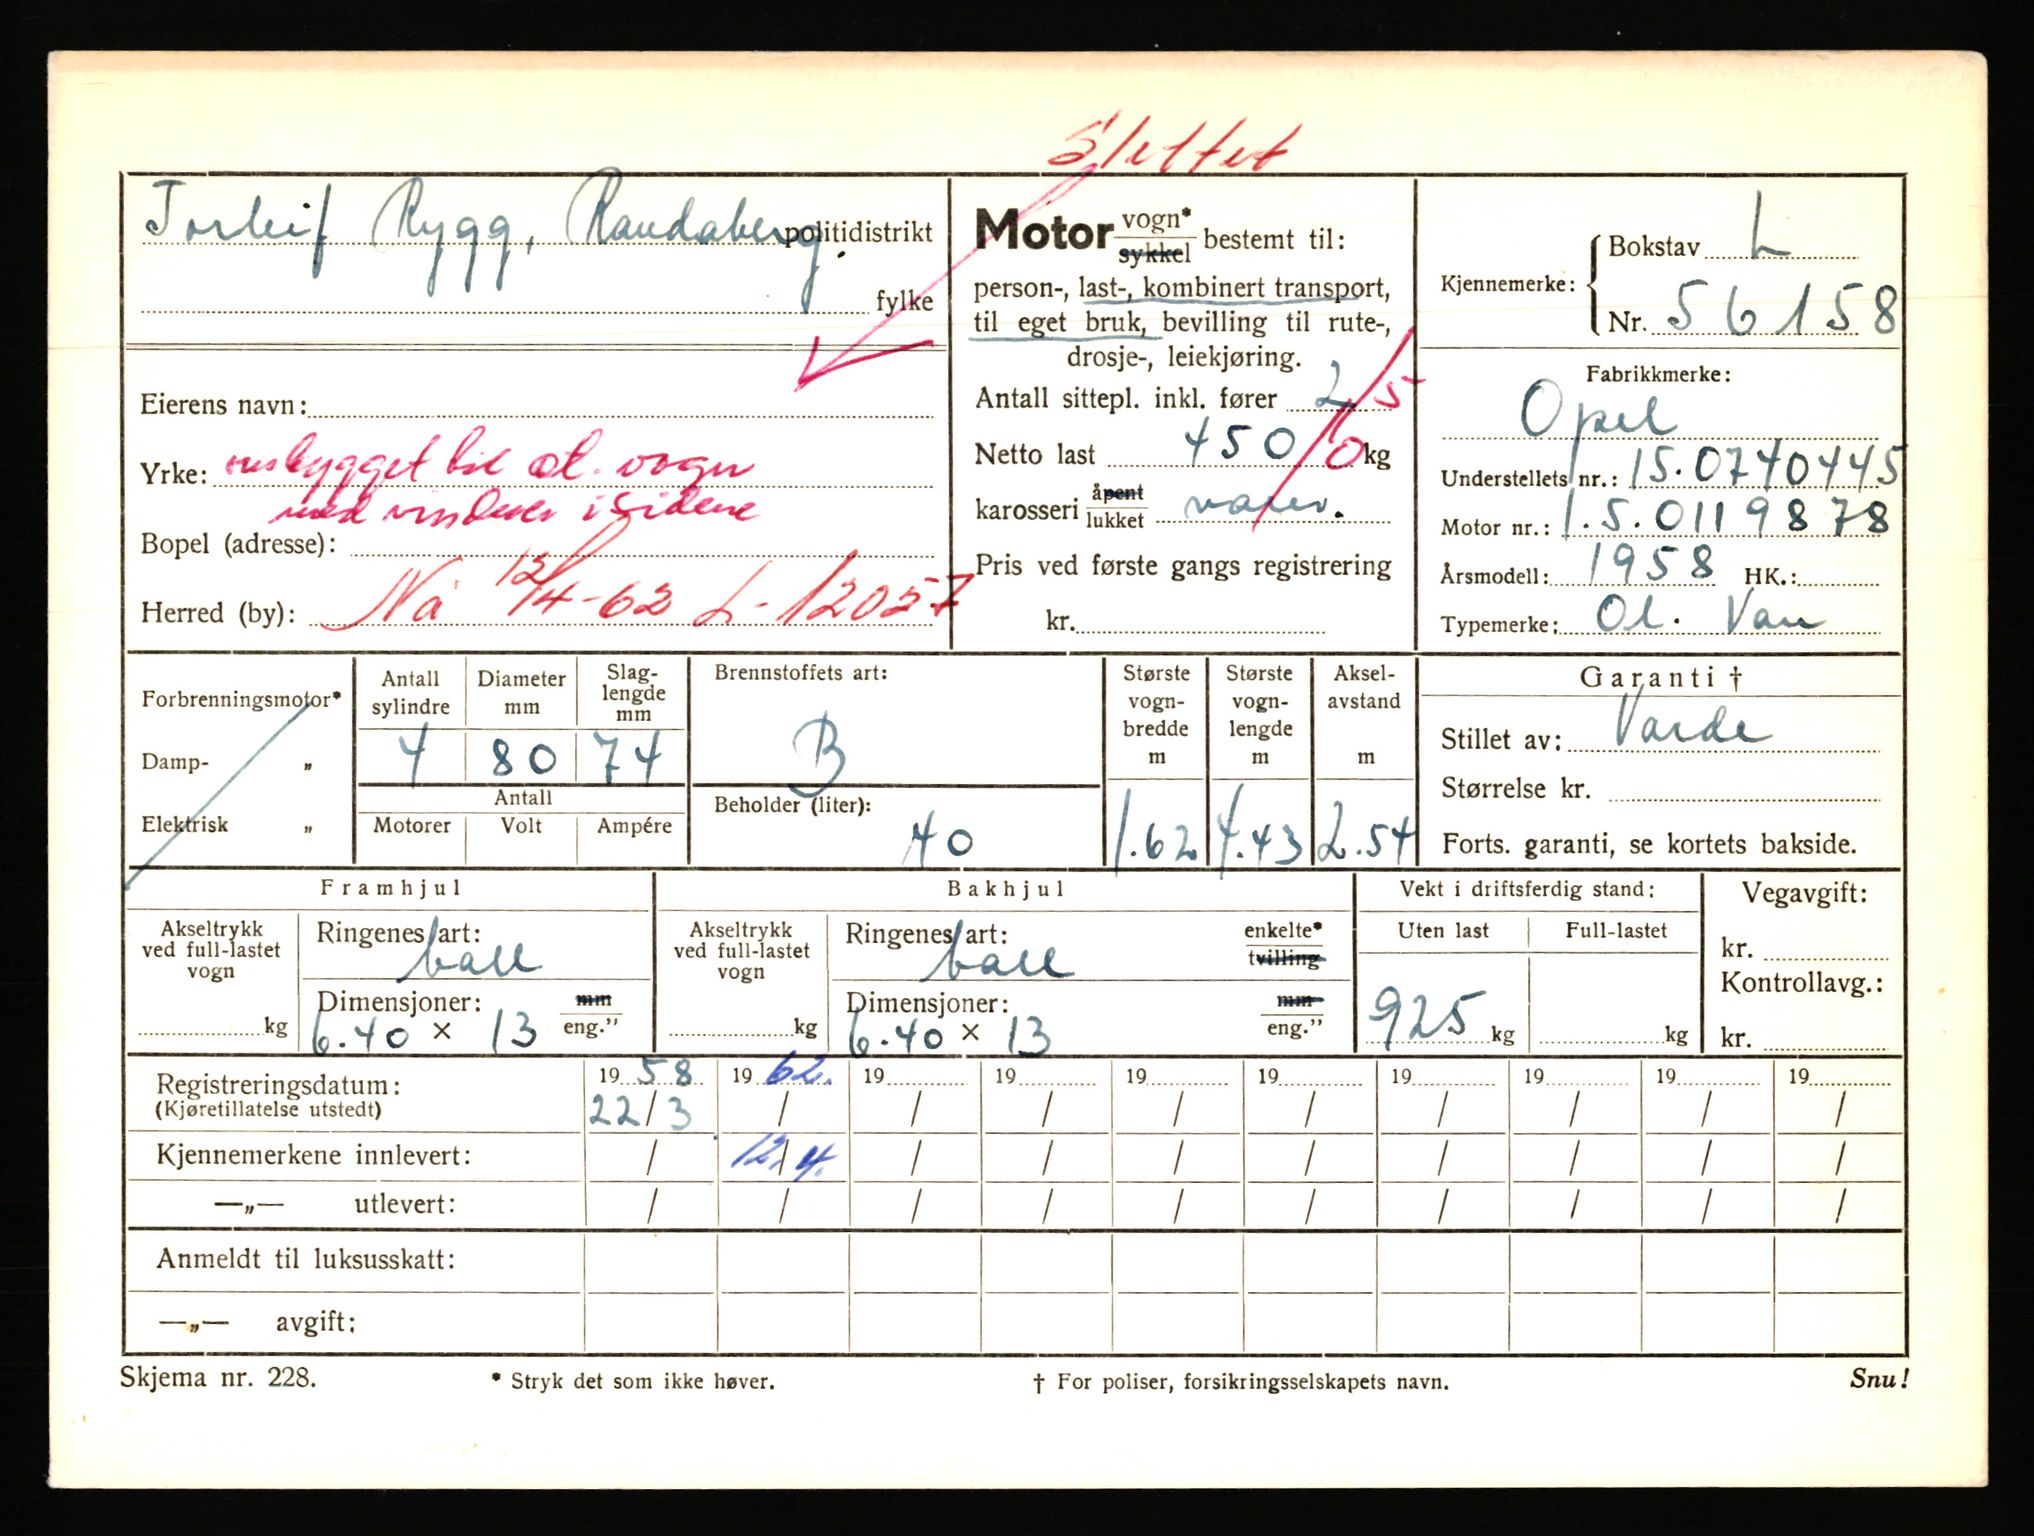 Slettet
Torleif Rygg, Randaberg. politidistrikt
fylke
Eierens navn:
Yrke: ombygget til st. vogn
med vinduer i sidene
Bopel (adresse):
Herred (by): Nå 12/4-62 L-12057
Motor vogn* sykkel bestemt til:
person-, last-, kombinert transport,
til eget bruk, bevilling til rute-,
drosje-, leiekjøring.
Antall sittepl. inkl. fører 2 / 5
Netto last 450 / 0 kg
karosseri åpent lukket varev.
Pris ved første gangs registrering
kr.
Kjennemerke: Bokstav L
Nr. 56158
Fabrikkmerke:
Opel
Understellets nr.: 15.0740445
Motor nr.: 1.5.0119878
Årsmodell: 1958 HK.:
Typemerke: Ol. Van
Forbrenningsmotor*
Damp- „
Elektrisk „
Antall sylindre 4
Diameter mm 80
Slaglengde mm 74
Antall
Motorer Volt Ampére
Brennstoffets art:
B
Beholder (liter):
40
Største vognbredde m 1.62
Største vognlengde m 4.43
Akselavstand m 2.54
Garanti †
Stillet av: Varde
Størrelse kr.
Forts. garanti, se kortets bakside.
Framhjul
Akseltrykk ved full-lastet vogn
kg
Ringenes art:
ball
Dimensjoner: mm
6.40 × 13 eng.”
Bakhjul
Akseltrykk ved full-lastet vogn
kg
Ringenes art: enkelte*
ball tvilling
Dimensjoner: mm
6.40 × 13 eng.”
Vekt i driftsferdig stand:
Uten last Full-lastet
925 kg kg
Vegavgift:
kr.
Kontrollavg.:
kr.
Registreringsdatum: 19 58 19 62. 19 19 19 19 19 19 19 19
(Kjøretillatelse utstedt) 22/3 / / / / / / / / /
Kjennemerkene innlevert: / 12/4. / / / / / / / /
—„— utlevert: / / / / / / / / / /
Anmeldt til luksusskatt:
—„— avgift:
Skjema nr. 228.
* Stryk det som ikke høver.
† For poliser, forsikringsselskapets navn.
Snu!